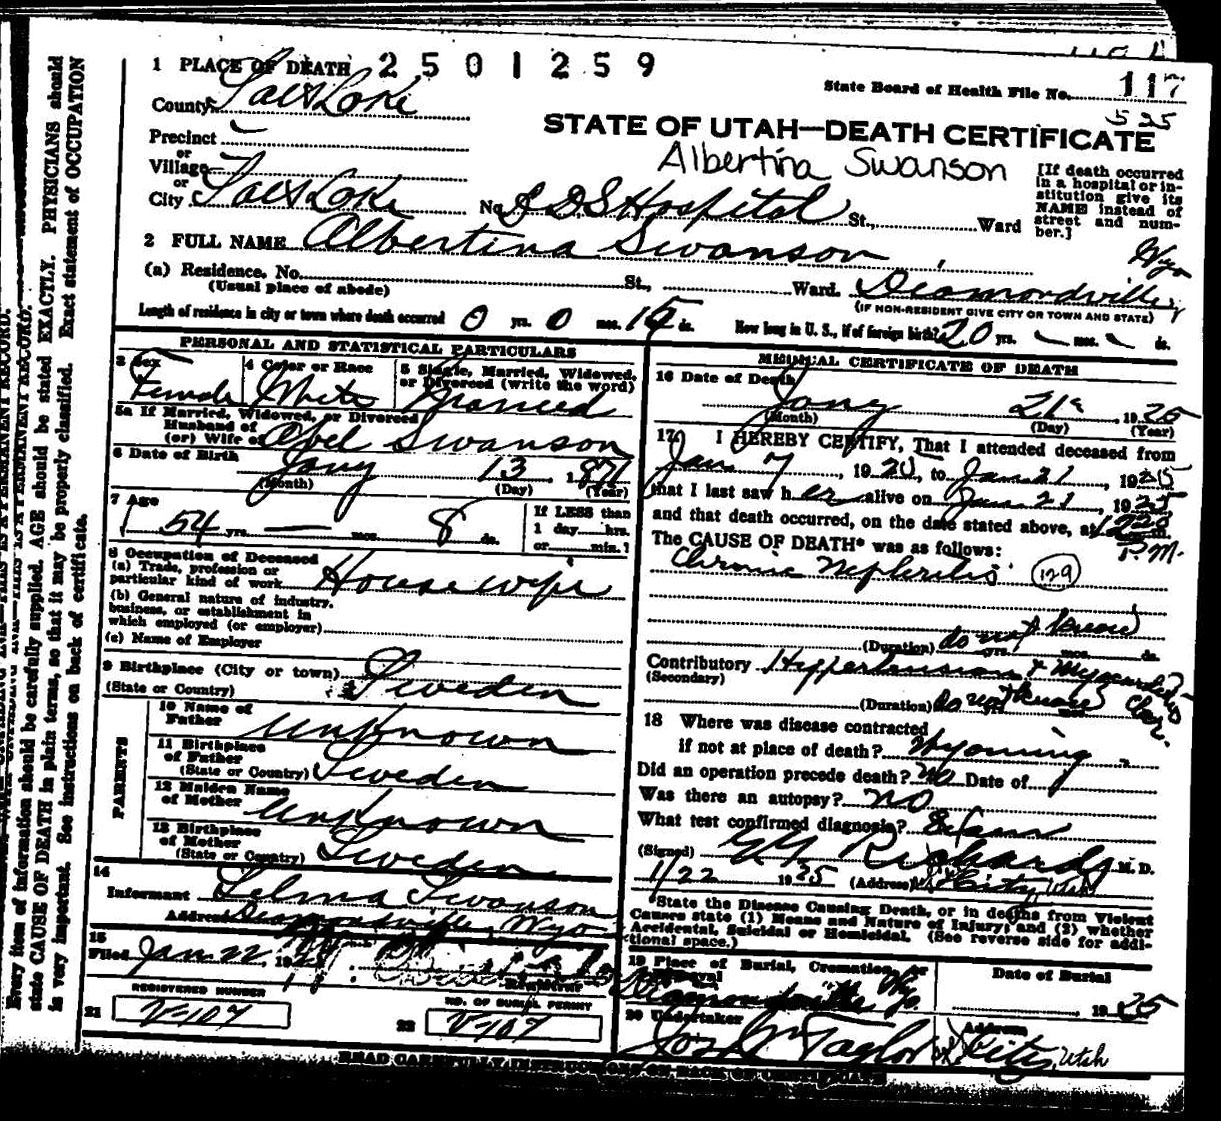 1 PLACE OF DEATH 2501259
State Board of Health File No. 117
County Salt Lake
525
STATE OF UTAH—DEATH CERTIFICATE
Precinct
or
Village
Albertina Swanson
[If death occurred in a hospital or institution give its NAME instead of street and number.]
or
City Salt Lake No. LDS Hospital St., Ward
2 FULL NAME Albertina Swanson
Wyo
(a) Residence. No. St., Ward. Diamondville
(Usual place of abode)
(IF NON-RESIDENT GIVE CITY OR TOWN AND STATE)
Length of residence in city or town where death occurred 0 yrs. 0 mos. 15 ds.
How long in U. S., if of foreign birth? 20 yrs. mos. ds.
PERSONAL AND STATISTICAL PARTICULARS
3 Sex Female
4 Color or Race White
5 Single, Married, Widowed, or Divorced (write the word) Married
5a If Married, Widowed, or Divorced
Husband of
(or) Wife of Abel Swanson
6 Date of Birth Jany 13, 1871
(Month) (Day) (Year)
7 Age
54 yrs. — mos. 8 ds.
If LESS than
1 day hrs.
or min.?
8 Occupation of Deceased
(a) Trade, profession or
particular kind of work Housewife
(b) General nature of industry,
business, or establishment in
which employed (or employer)
(c) Name of Employer
9 Birthplace (City or town)
(State or Country) Sweden
PARENTS
10 Name of
Father Unknown
11 Birthplace
of Father
(State or Country) Sweden
12 Maiden Name
of Mother Unknown
13 Birthplace
of Mother
(State or Country) Sweden
14
Informant Selma Swanson
Address Diamondville, Wyo
15
Filed Jan 22, 1925
Registrar
REGISTERED NUMBER
21 V-107
NO. OF BURIAL PERMIT
22 V-107
MEDICAL CERTIFICATE OF DEATH
16 Date of Death
Jany 21st 1925
(Month) (Day) (Year)
17 I HEREBY CERTIFY, That I attended deceased from
Jan 7, 1925, to Jan 21, 1925
that I last saw her alive on Jan 21, 1925
and that death occurred, on the date stated above, at
P.M.
The CAUSE OF DEATH* was as follows:
Chronic Nephritis 129
(Duration) do not know yrs. mos. ds.
Contributory Hypertension & Myocarditis
(Secondary)
Chr.
(Duration) do not know
18 Where was disease contracted
if not at place of death? Wyoming
Did an operation precede death? no Date of
Was there an autopsy? no
What test confirmed diagnosis? Exam
(Signed) Richards M. D.
1/22 1925 (Address) City Utah
*State the Disease Causing Death, or in deaths from Violent
Causes state (1) Means and Nature of Injury; and (2) whether
Accidental, Suicidal or Homicidal. (See reverse side for addi-
tional space.)
19 Place of Burial, Cremation, or
Removal
Diamondville Wyo.
Date of Burial
1925
20 Undertaker
Address
Taylor City, Utah
READ CAREFULLY INSTRUCTIONS ON BACK OF CERTIFICATE
Every item of information should be carefully supplied. AGE should be stated EXACTLY. PHYSICIANS should
state CAUSE OF DEATH in plain terms, so that it may be properly classified. Exact statement of OCCUPATION
is very important. See instructions on back of certificate.